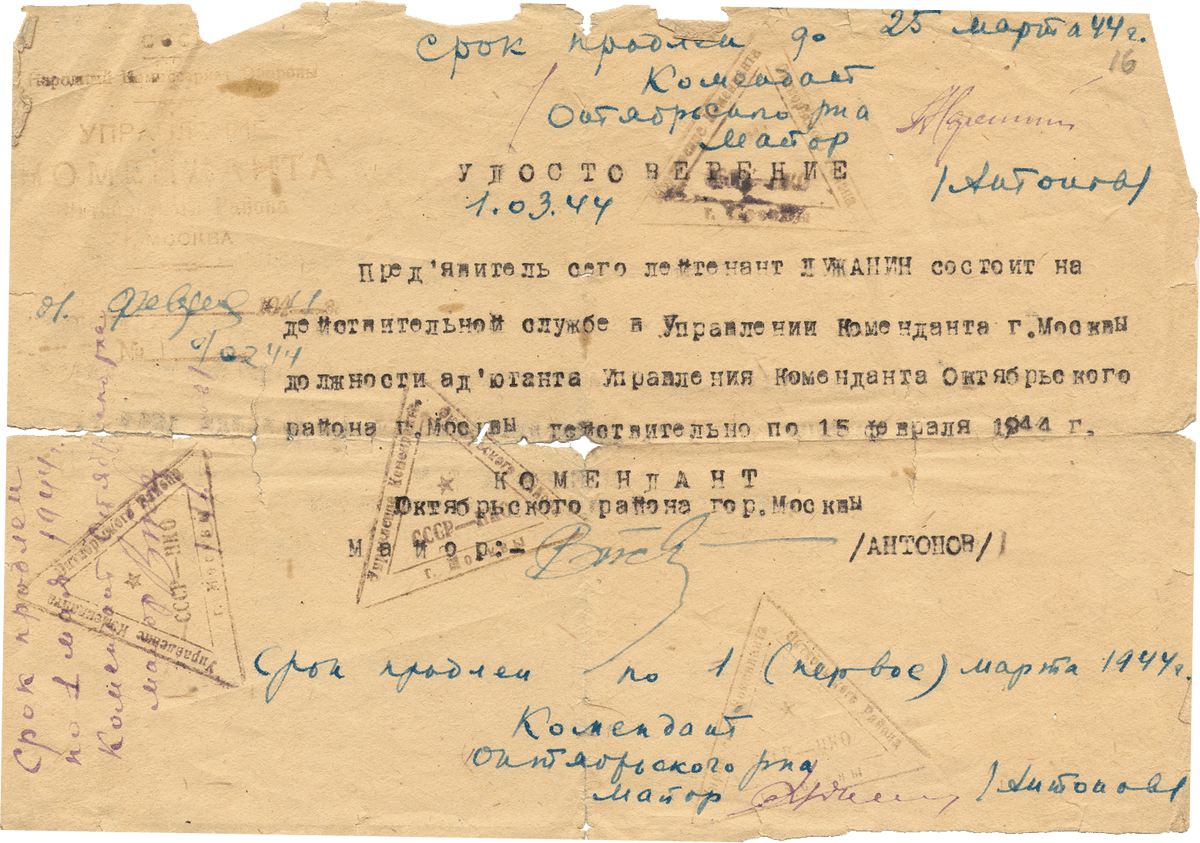 СССР
Народный Комиссариат Обороны
УПРАВЛЕНИЕ
КОМЕНДАНТА
Района
МОСКВА
01. февраля 1944
№
01/02 44
срок продлен до 25 марта 44 г.
16
Комендант
Октябрьского р-на
майор
/Антонов/
УДОСТОВЕРЕНИЕ
1.03.44
Пред'явитель сего лейтенант ЛУЖАНИН состоит на
действительной службе в Управлении Коменданта г.Москвы
должности ад'ютанта Управления Коменданта Октябрьского
района г.Москвы действительно по 15 февраля 1944 г.
КОМЕНДАНТ
Октябрьского района гор.Москвы
Майор:- /АНТОНОВ/
Управление Коменданта
Октябрьского Района
СССР—НКО
г. Москвы
Срок продлен по 1 (первое) марта 1944 г.
Комендант
Октябрьского р-на
майор /Антонов/
Коменданта
Октябрьского Района
СССР—НКО
Срок продлен
по 1 мая 1944 г.
Комендант Октябр
майор
Управление Коменданта
Октябрьского Района
СССР—НКО
г. Москвы